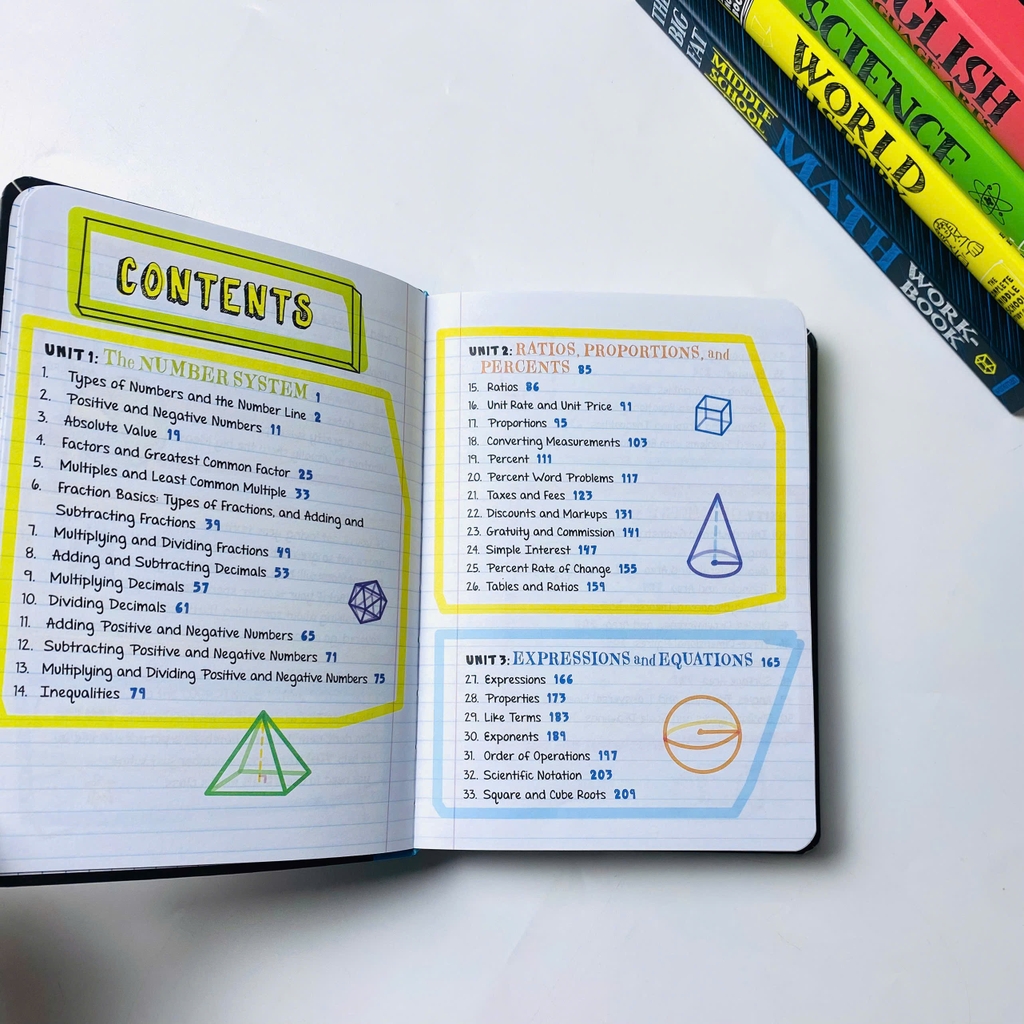 CONTENTS
UNIT 1: The NUMBER SYSTEM 1
1. Types of Numbers and the Number Line 2
2. Positive and Negative Numbers 11
3. Absolute Value 19
4. Factors and Greatest Common Factor 25
5. Multiples and Least Common Multiple 33
6. Fraction Basics: Types of Fractions, and Adding and
Subtracting Fractions 39
7. Multiplying and Dividing Fractions 49
8. Adding and Subtracting Decimals 53
9. Multiplying Decimals 57
10. Dividing Decimals 61
11. Adding Positive and Negative Numbers 65
12. Subtracting Positive and Negative Numbers 71
13. Multiplying and Dividing Positive and Negative Numbers 75
14. Inequalities 79
UNIT 2: RATIOS, PROPORTIONS, and
PERCENTS 85
15. Ratios 86
16. Unit Rate and Unit Price 91
17. Proportions 95
18. Converting Measurements 103
19. Percent 111
20. Percent Word Problems 117
21. Taxes and Fees 123
22. Discounts and Markups 131
23. Gratuity and Commission 141
24. Simple Interest 147
25. Percent Rate of Change 155
26. Tables and Ratios 159
UNIT 3: EXPRESSIONS and EQUATIONS 165
27. Expressions 166
28. Properties 173
29. Like Terms 183
30. Exponents 189
31. Order of Operations 197
32. Scientific Notation 203
33. Square and Cube Roots 209
ENGLISH
LANGUAGE ARTS
SCIENCE
WORLD
HISTORY
THE
BIG
FAT
MIDDLE
SCHOOL
MATH
WORK-
BOOK